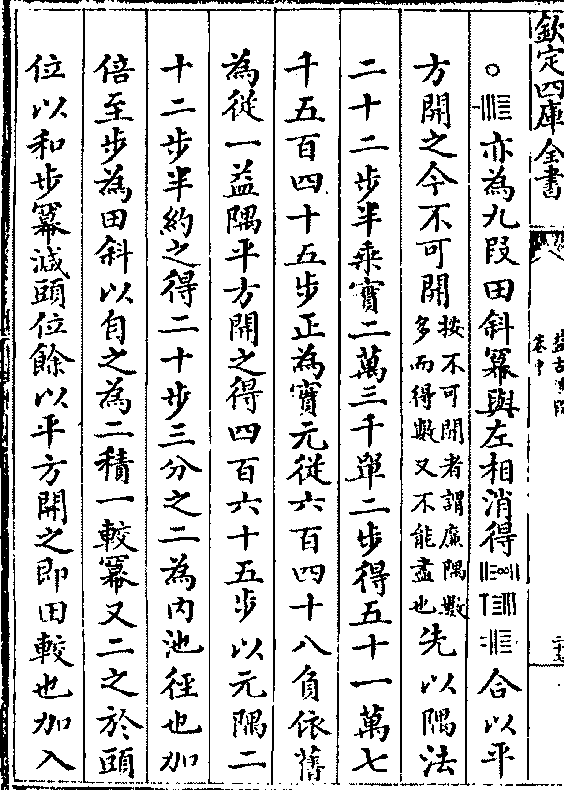 欽定四庫全書
卷中
二十七
〇亦為九段田斜冪與左相消得合以平
方開之今不可開按不可開者謂廉隅數多而得數又不能盡也先以隅法
二十二步半乘實二萬三千單二步得五十一萬七
千五百四十五步正為實元從六百四十八負依舊
為從一益隅平方開之得四百六十五步以元隅二
十二步半約之得二十步三分之二為内池徑也加
倍至步為田斜以自之為二積一較冪又二之於頭
位以和步冪減頭位餘以平方開之即田較也加入